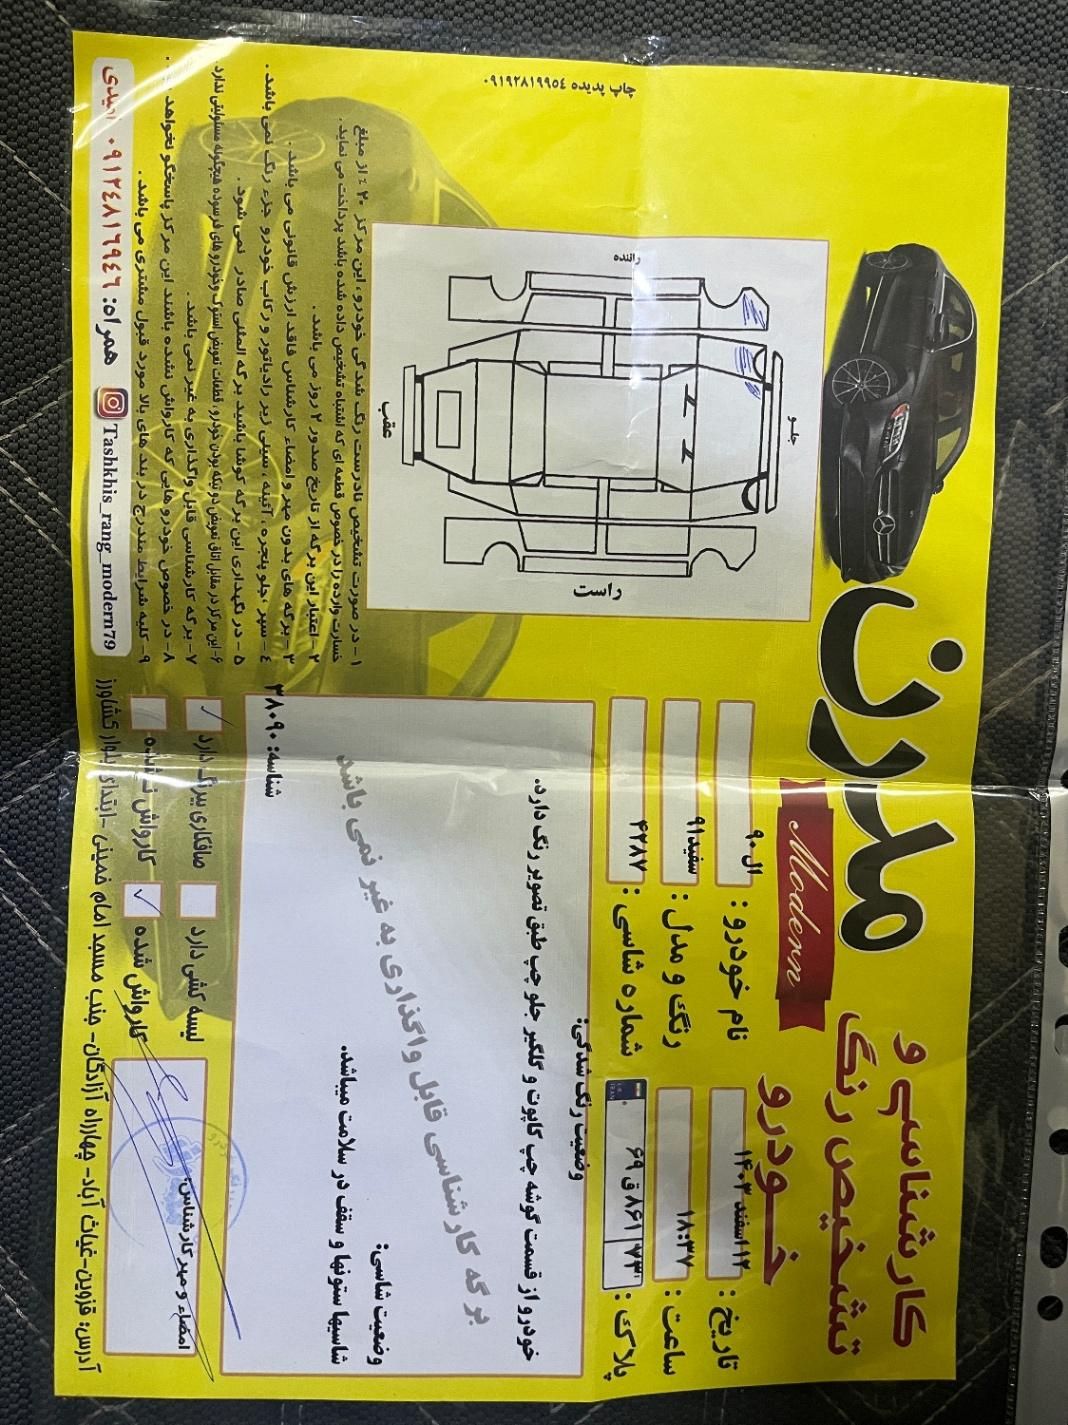 کارشناسی و
تشخیص رنگ
خودرو
مدرن
Modern
تاریخ: ۱۲ اسفند ۱۴۰۳
ساعت: ۱۸:۳۷
پلاک:
۶۹ ق ۸۶۱
نام خودرو: ال۹۰
رنگ و مدل: سفید۹۱
شماره شاسی: ۴۲۸۷
جلو
راننده
راست
عقب
وضعیت رنگ شدگی:
خودرو از قسمت گوشه چپ کاپوت و گلگیر جلو چپ طبق تصویر رنگ دارد.
برگه کارشناسی قابل واگذاری به غیر نمی باشد
وضعیت شاسی:
شاسیها ستونها و سقف در سلامت میباشد.
شناسه: ۳۸۰۹۰
لیسه کشی دارد
صافکاری بیرنگ دارد
کارواش شده
کارواش نشده
امضاء و مهر کارشناس:
چاپ پدیده ۰۹۱۹۲۸۱۹۹۵۴
۱- در صورت تشخیص نادرست رنگ شدگی خودرو، این مرکز ۲۰٪ از مبلغ
خسارت وارده را در خصوص قطعه ای که اشتباه تشخیص داده شده باشد پرداخت می نماید.
۲- اعتبار این برگه از تاریخ صدور ۲ روز می باشد.
۳- برگه های بدون مهر و امضاء کارشناس فاقد ارزش قانونی می باشد.
۴- سپر، جلو پنجره، آئینه، سینی زیر رادیاتور و رکاب خودرو جزء رنگ نمی باشد.
۵- در نگهداری این برگه کوشا باشید برگه المثنی صادر نمی شود.
۶- این مرکز در مقابل اتاق تعویض و دوتیکه بودن خودرو، قطعات تعویض استوک و خودروهای فرسوده هیچگونه مسئولیتی ندارد.
۷- برگه کارشناسی قابل واگذاری به غیر نمی باشد.
۸- در خصوص خودرو هایی که کارواش نشده باشند این مرکز پاسخگو نخواهد
۹- کلیه شرایط مندرج در بند های بالا مورد قبول مشتری می باشد.
Tashkhis_rang_modern79 همراه: ۰۹۱۲۴۸۱۶۹۴۶
آدرس: قزوین- غیاث آباد- چهارراه آزادگان- جنب مسجد امام خمینی- ابتدای بلوار کشاورز